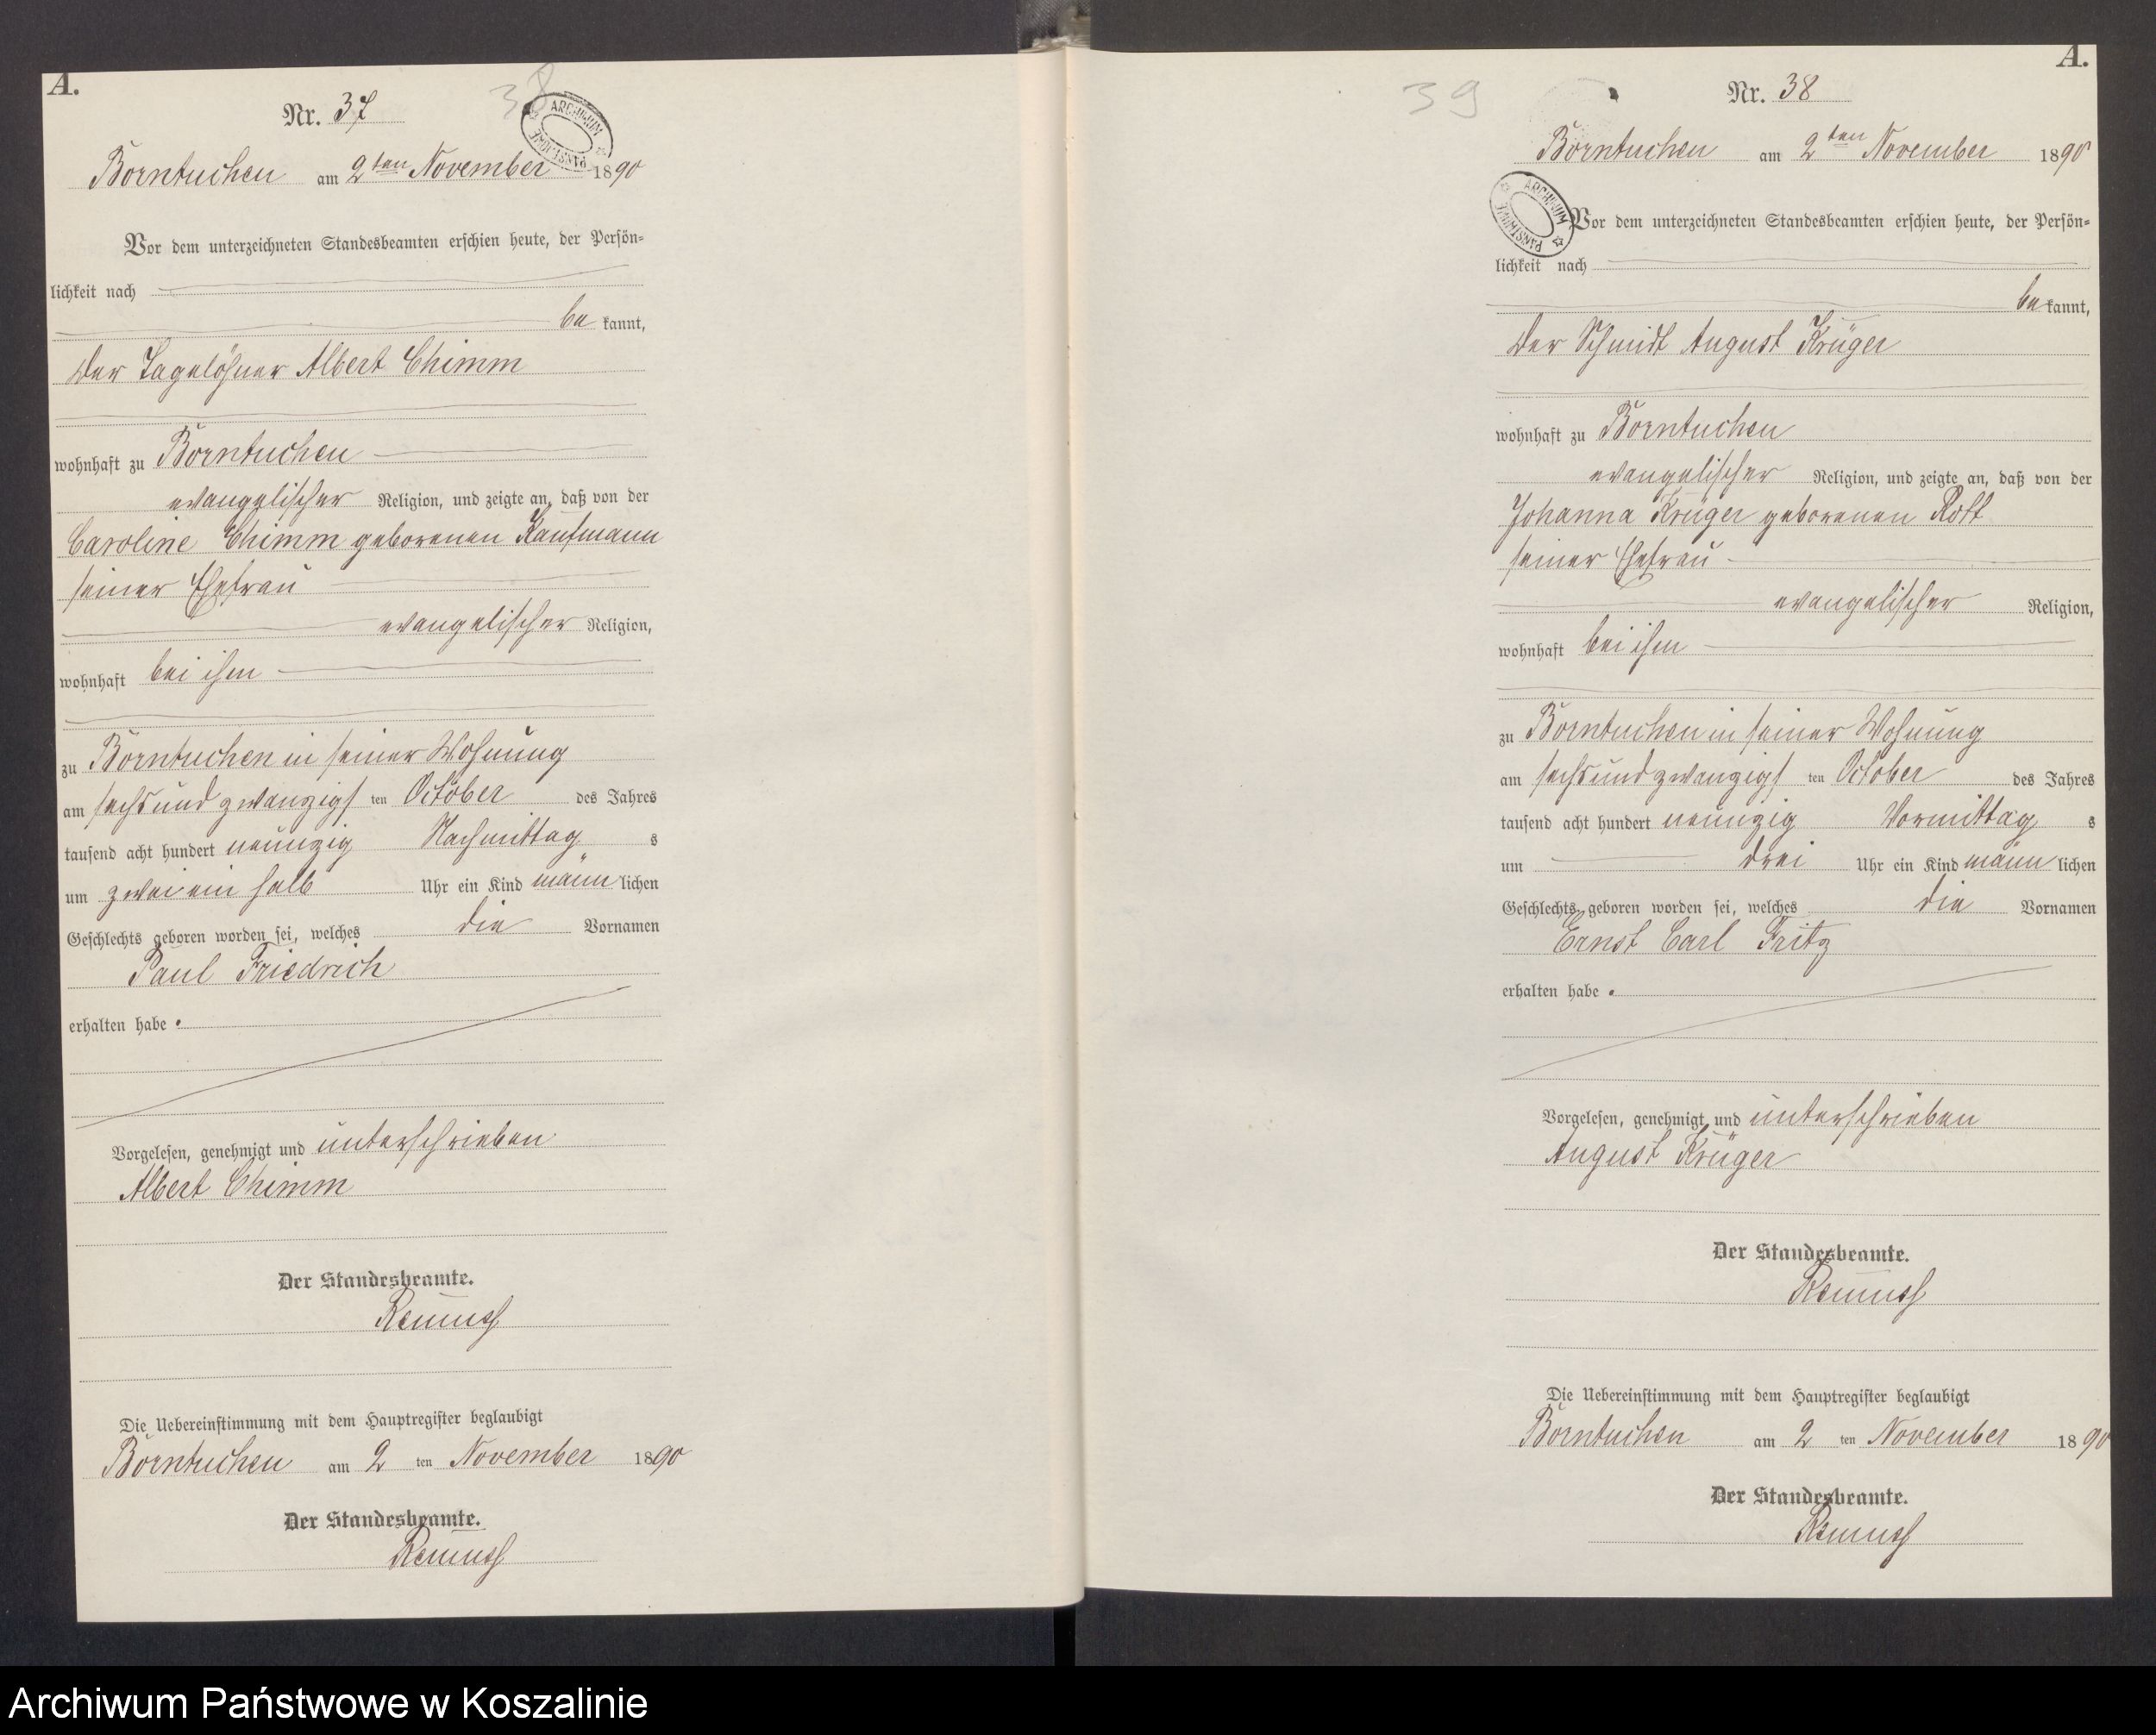 A.
Nr. 37
38
ARCHIWUM PAŃSTWOWE
Borntuchen am 2ten November 1890
Vor dem unterzeichneten Standesbeamten erschien heute, der Persön=
lichkeit nach
be kannt,
der Tagelöhner Albert Chimm
wohnhaft zu Borntuchen
evangelischer Religion, und zeigte an, daß von der
Caroline Chimm geborenen Kaufmann
seiner Ehefrau
evangelischer Religion,
wohnhaft bei ihm
zu Borntuchen in seiner Wohnung
am sechsundzwanzigs ten October des Jahres
tausend acht hundert neunzig Nachmittag s
um zwei ein halb Uhr ein Kind männ lichen
Geschlechts geboren worden sei, welches die Vornamen
Paul Friedrich
erhalten habe.
Vorgelesen, genehmigt und unterschrieben
Albert Chimm
Der Standesbeamte.
Die Uebereinstimmung mit dem Hauptregister beglaubigt
Borntuchen am 2 ten November 1890
Der Standesbeamte.
A.
39
Nr. 38
Borntuchen am 2ten November 1890
ARCHIWUM PAŃSTWOWE
Vor dem unterzeichneten Standesbeamten erschien heute, der Persön=
lichkeit nach
be kannt,
der Schmidt August Krüger
wohnhaft zu Borntuchen
evangelischer Religion, und zeigte an, daß von der
Johanna Krüger geborenen
seiner Ehefrau
evangelischer Religion,
wohnhaft bei ihm
zu Borntuchen in seiner Wohnung
am sechsundzwanzigs ten October des Jahres
tausend acht hundert neunzig Vormittag s
um drei Uhr ein Kind männ lichen
Geschlechts geboren worden sei, welches die Vornamen
Ernst Carl Fritz
erhalten habe.
Vorgelesen, genehmigt und unterschrieben
August Krüger
Der Standesbeamte.
Die Uebereinstimmung mit dem Hauptregister beglaubigt
Borntuchen am 2 ten November 1890
Der Standesbeamte.
Archiwum Państwowe w Koszalinie